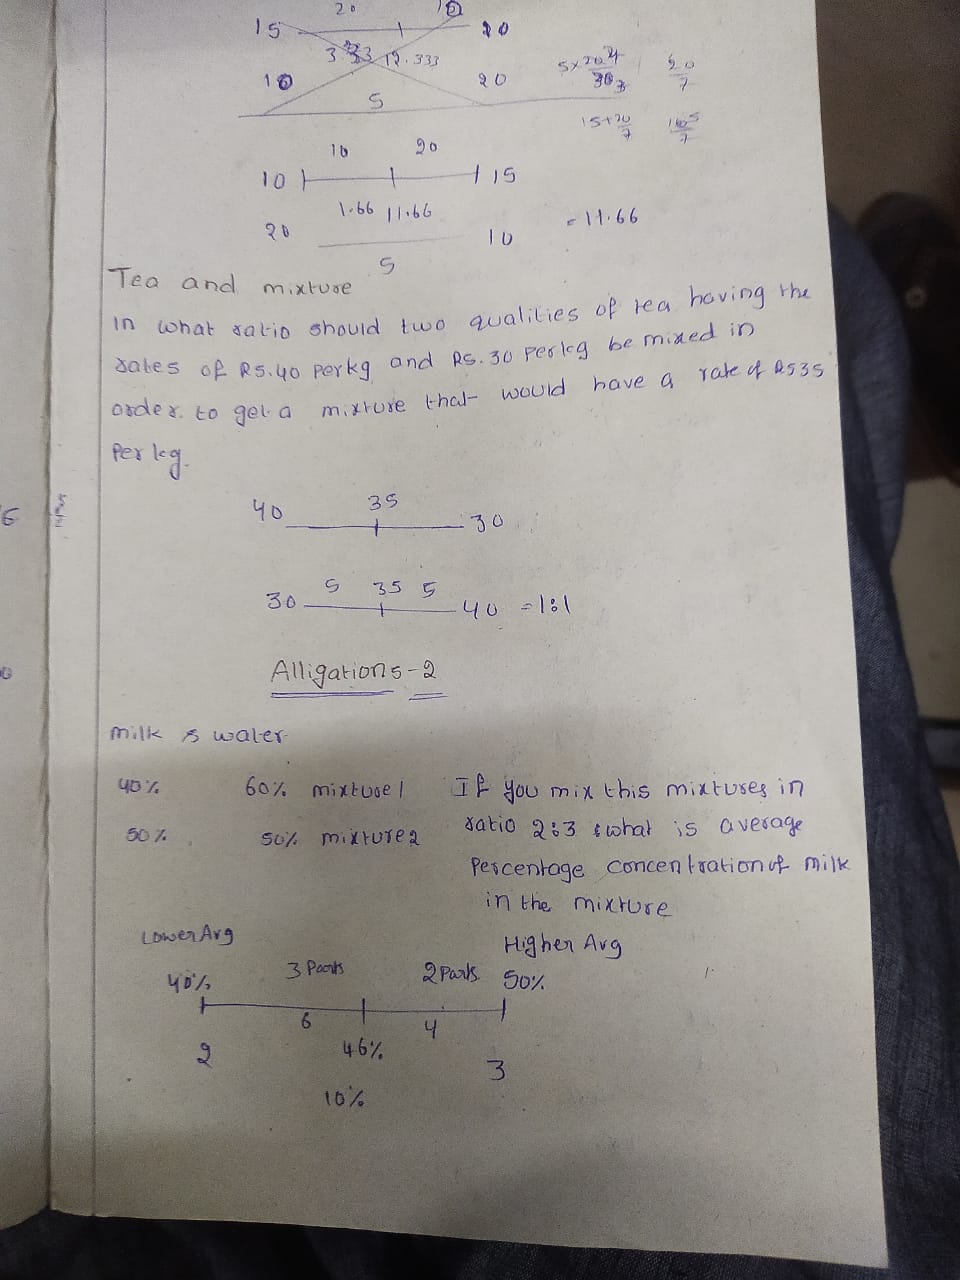 20 10
15 20
3 33 12.333
10 20
5
5x20 4
30 3
20
7
15+20
7
165
7
10 20
10 15
1.66 11.66
= 11.66
20 10
5
Tea and mixture
In what ratio should two qualities of tea having the
rates of Rs.40 per kg and Rs.30 per kg be mixed in
order to get a mixture that would have a rate of Rs35
Per kg.
40 35 30
30 5 35 5 40 =1:1
Alligations-2
milk & water
40% 60% mixture 1 If you mix this mixtures in
50% 50% mixture 2 ratio 2:3 what is average
Percentage concentration of milk
in the mixture
Lower Avg Higher Avg
40% 3 Parts 2 Parts 50%
6 4
2 46% 3
10%